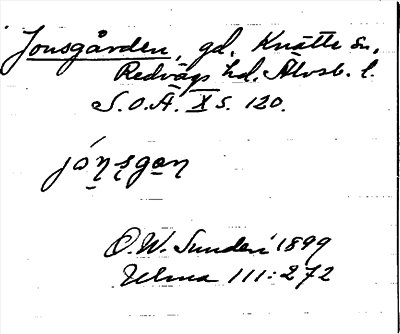 Jonsgården, gd. Knätte sn,
Redvägs hd. Älvsb. l.
S.O.Ä. X s. 120.
jónsgan
O.W. Sundén 1899
Ulma 111:272